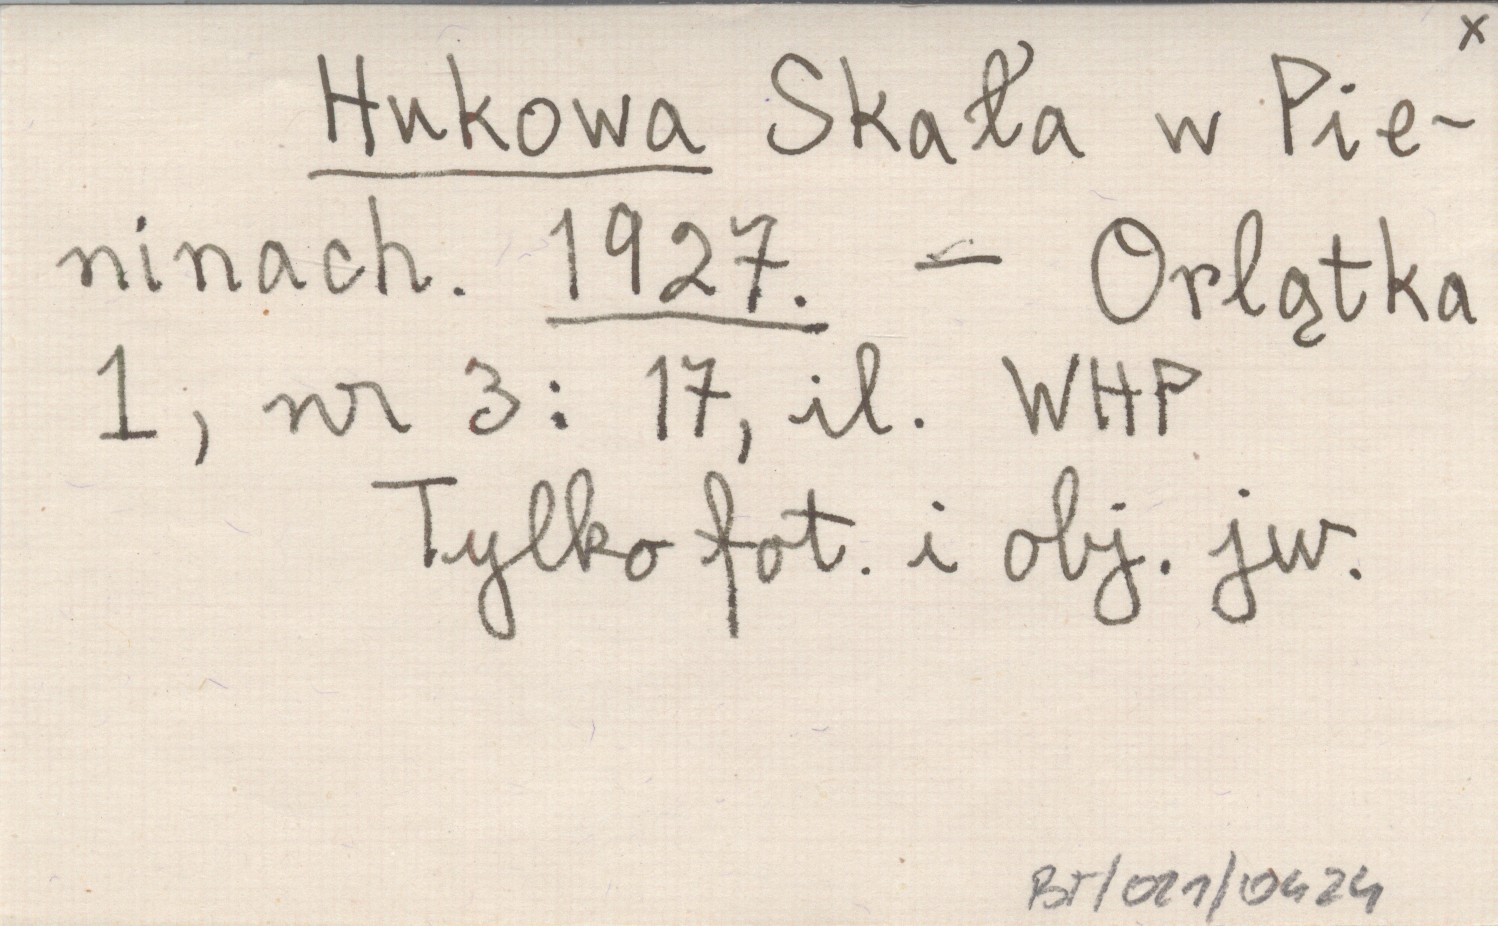 x
Hukowa Skała w Pie-
ninach. 1927. - Orlątka
1, nr 3: 17, il. WHP
Tylko fot. i obj. jw.
BT/021/0424